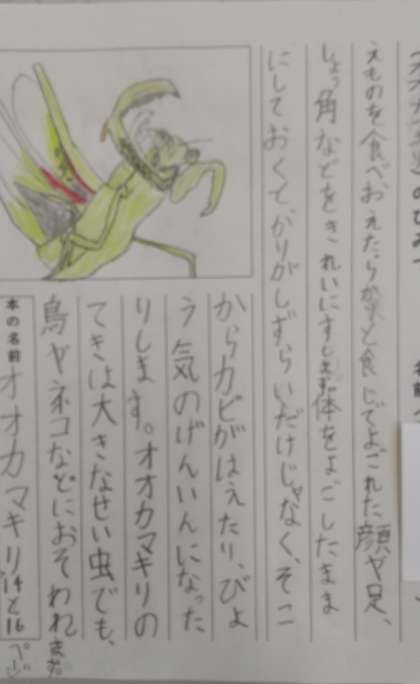 のひみつ
えものを食べおえたらかりと食じでよごれた顔や足、
しょっ角などをきれいにします。体をよごしたまま
にしておくて、かりがしずらいだけじゃなく、そこ
からカビがはえたり、びょ
う気のげんいんになった
りします。オオカマキリの
てきは大きなせい虫でも、
鳥ヤネコなどにおそわれます
本の名前 オオカマキリ 14と16ページ